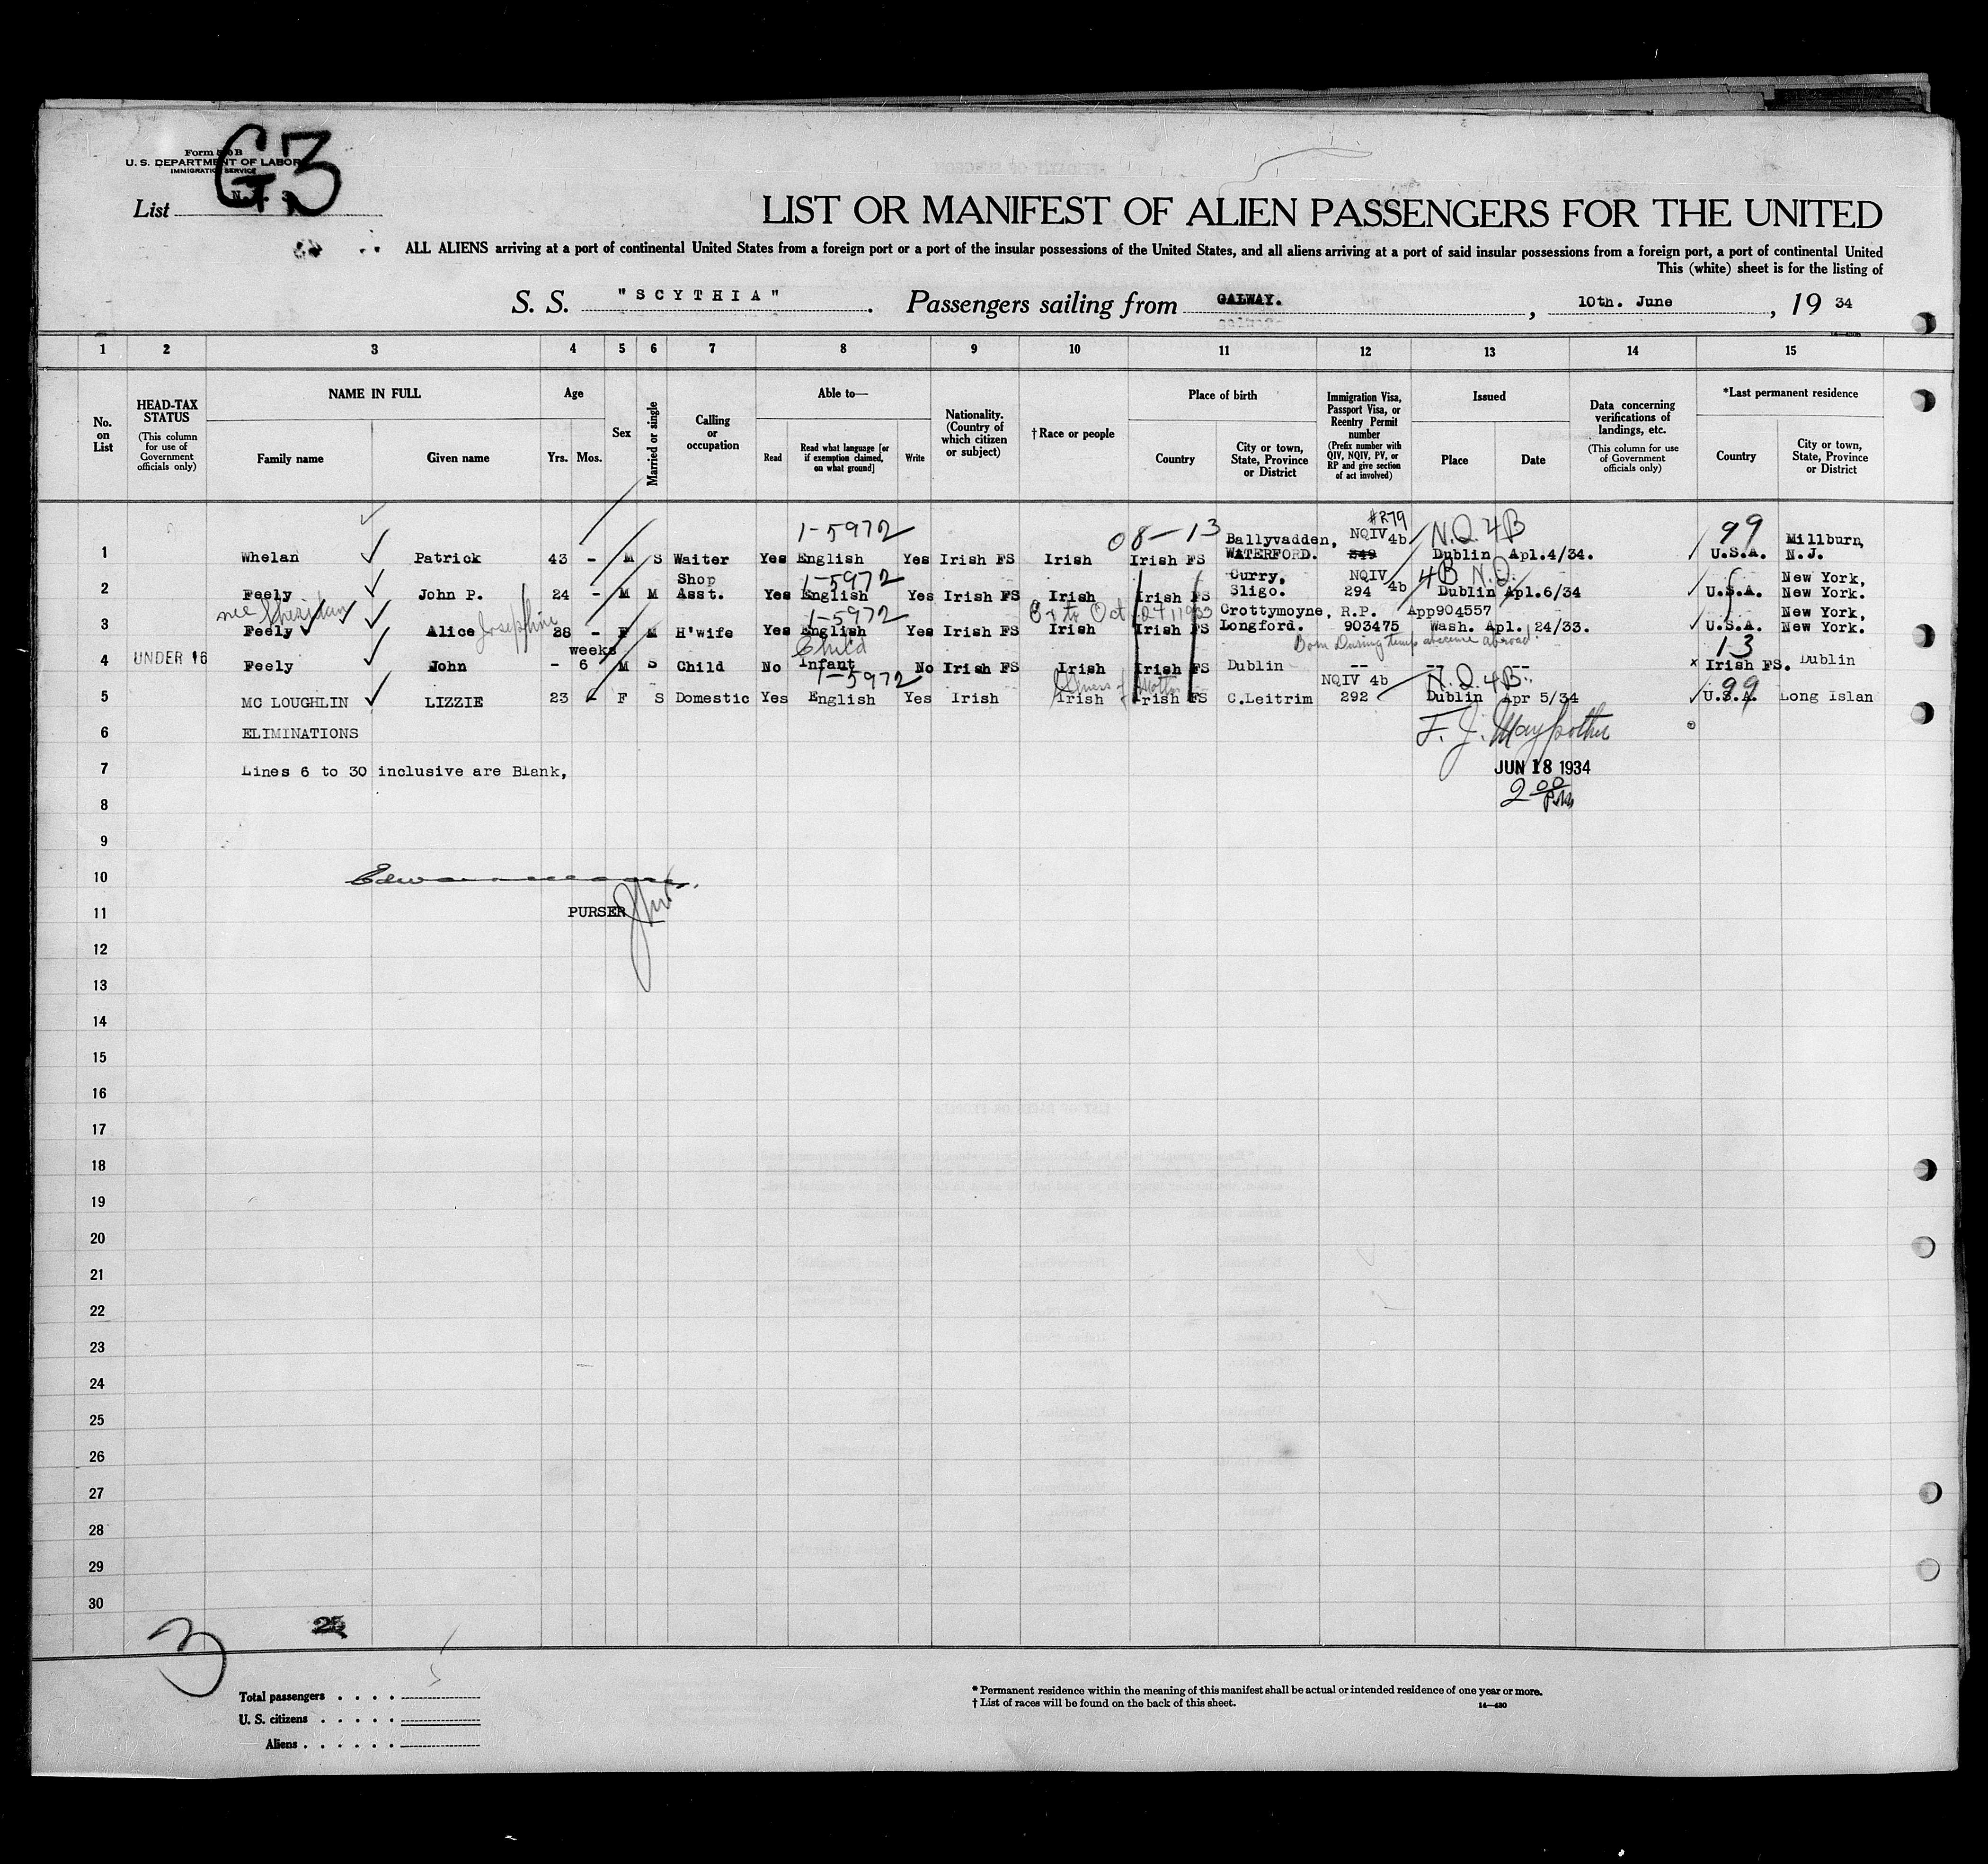 Form 500 B
U. S. DEPARTMENT OF LABOR
IMMIGRATION SERVICE
G3
List
LIST OR MANIFEST OF ALIEN PASSENGERS FOR THE UNITED
ALL ALIENS arriving at a port of continental United States from a foreign port or a port of the insular possessions of the United States, and all aliens arriving at a port of said insular possessions from a foreign port, a port of continental United
This (white) sheet is for the listing of
S. S. "SCYTHIA". Passengers sailing from GALWAY. , 10th. June , 19 34
1 2 3 4 5 6 7 8 9 10 11 12 13 14 15
No. on List
HEAD-TAX STATUS (This column for use of Government officials only)
NAME IN FULL
Family name
Given name
Age
Yrs. Mos.
Sex
Married or single
Calling or occupation
Able to—
Read
Read what language [or if exemption claimed, on what ground]
Write
Nationality. (Country of which citizen or subject)
†Race or people
Place of birth
Country
City or town, State, Province or District
Immigration Visa, Passport Visa, or Reentry Permit number (Prefix number with QIV, NQIV, PV, or RP and give section of act involved)
Issued
Place
Date
Data concerning verifications of landings, etc. (This column for use of Government officials only)
*Last permanent residence
Country
City or town, State, Province or District
1-5972 08-13 #279 N.Q. 4B 99
1 Whelan Patrick 43 - M S Waiter Yes English Yes Irish FS Irish Irish FS Ballyvadden, WATERFORD. NQIV 4b Dublin Apl.4/34. U.S.A. Millburn, N.J.
1-5972 4B N.Q.
2 Feely John P. 24 - M M Shop Asst. Yes English Yes Irish FS Irish Irish FS Curry, Sligo. NQIV 4b 294 Dublin Apl.6/34 U.S.A. New York, New York.
nee Sheridan Josephine 1-5972 Ex to Oct. 24, 1933
3 Feely Alice 28 - F M H'wife Yes English Yes Irish FS Irish Irish FS Crottymoyne, Longford. R.P. 903475 App904557 Wash. Apl. 24/33. U.S.A. New York, New York.
Child Born During temp absence abroad 13
4 UNDER 16 Feely John - weeks 6 M S Child No Infant No Irish FS Irish Irish FS Dublin -- -- -- Irish FS. Dublin
1-5972 Illness of Mother N.Q. 4B. 99
5 MC LOUGHLIN LIZZIE 23 - F S Domestic Yes English Yes Irish Irish Irish FS C.Leitrim NQIV 4b 292 Dublin Apr 5/34 U.S.A. Long Islan
6 ELIMINATIONS
7 Lines 6 to 30 inclusive are Blank,
JUN 18 1934
8
2 00 P.M.
9
10
11 PURSER
12
13
14
15
16
17
18
19
20
21
22
23
24
25
26
27
28
29
30
3
Total passengers . . . .
U. S. citizens . . . . .
Aliens . . . . . .
* Permanent residence within the meaning of this manifest shall be actual or intended residence of one year or more.
† List of races will be found on the back of this sheet.
14—430